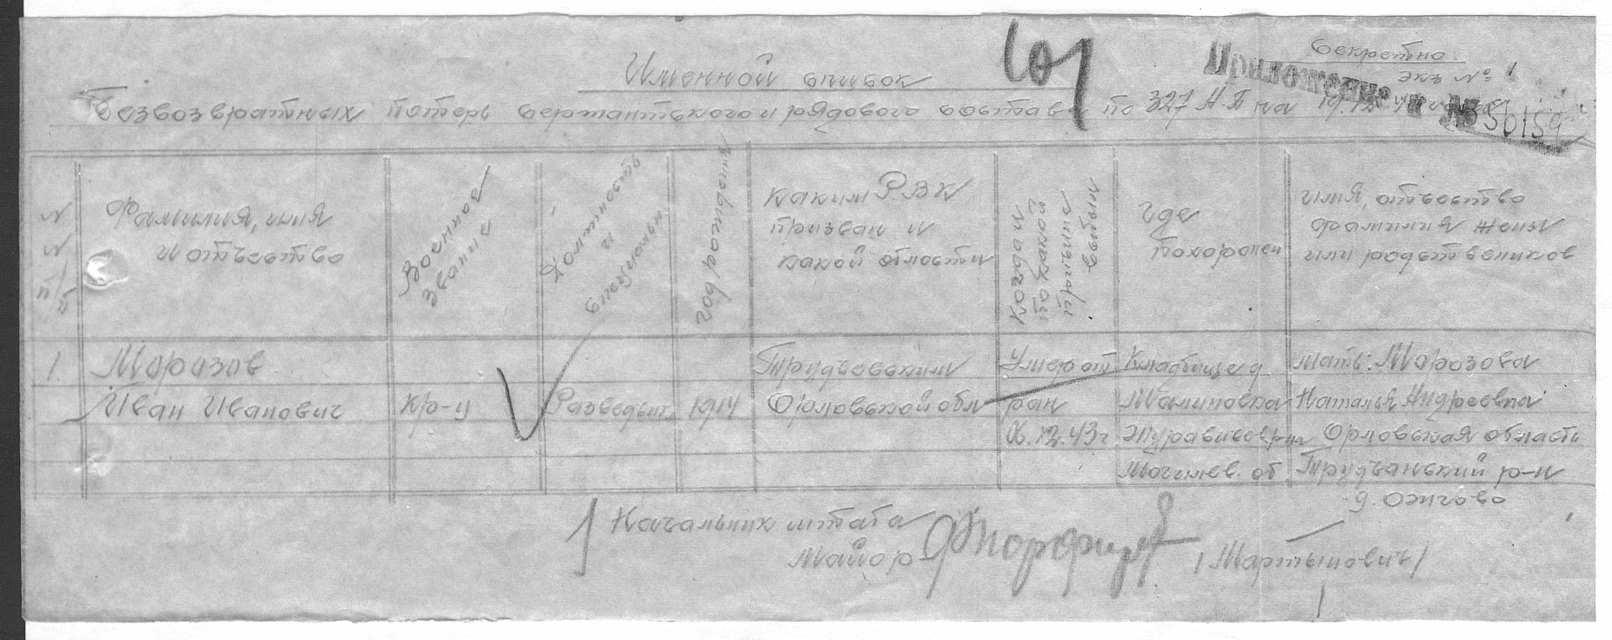 Секретно
экз № 1
Приложение к № 56159
101
Именной список
Безвозвратных потерь сержантского и рядового состава по 327 А П на
№ № п/п
Фамилия, имя и отчество
Военное звание
Должность и специальн.
год рожд
каким РВК призван и какой области
Когда и по какой причине выбыл
где похоронен
имя, отчество фамилия жены или родственников
1. Марозов Иван Иванович
кр-ц
Разведчик
1914
Трудчевским Орловской обл
Умер от ран 06.12.43 г
Кладбище д. Малиновка Журавичск. р-н Могилев. об
мать: Морозова Наталья Андреевна Орловская область Трудчанский р-н д. Ожгово
Начальник штаба
Майор
/Мартынович/